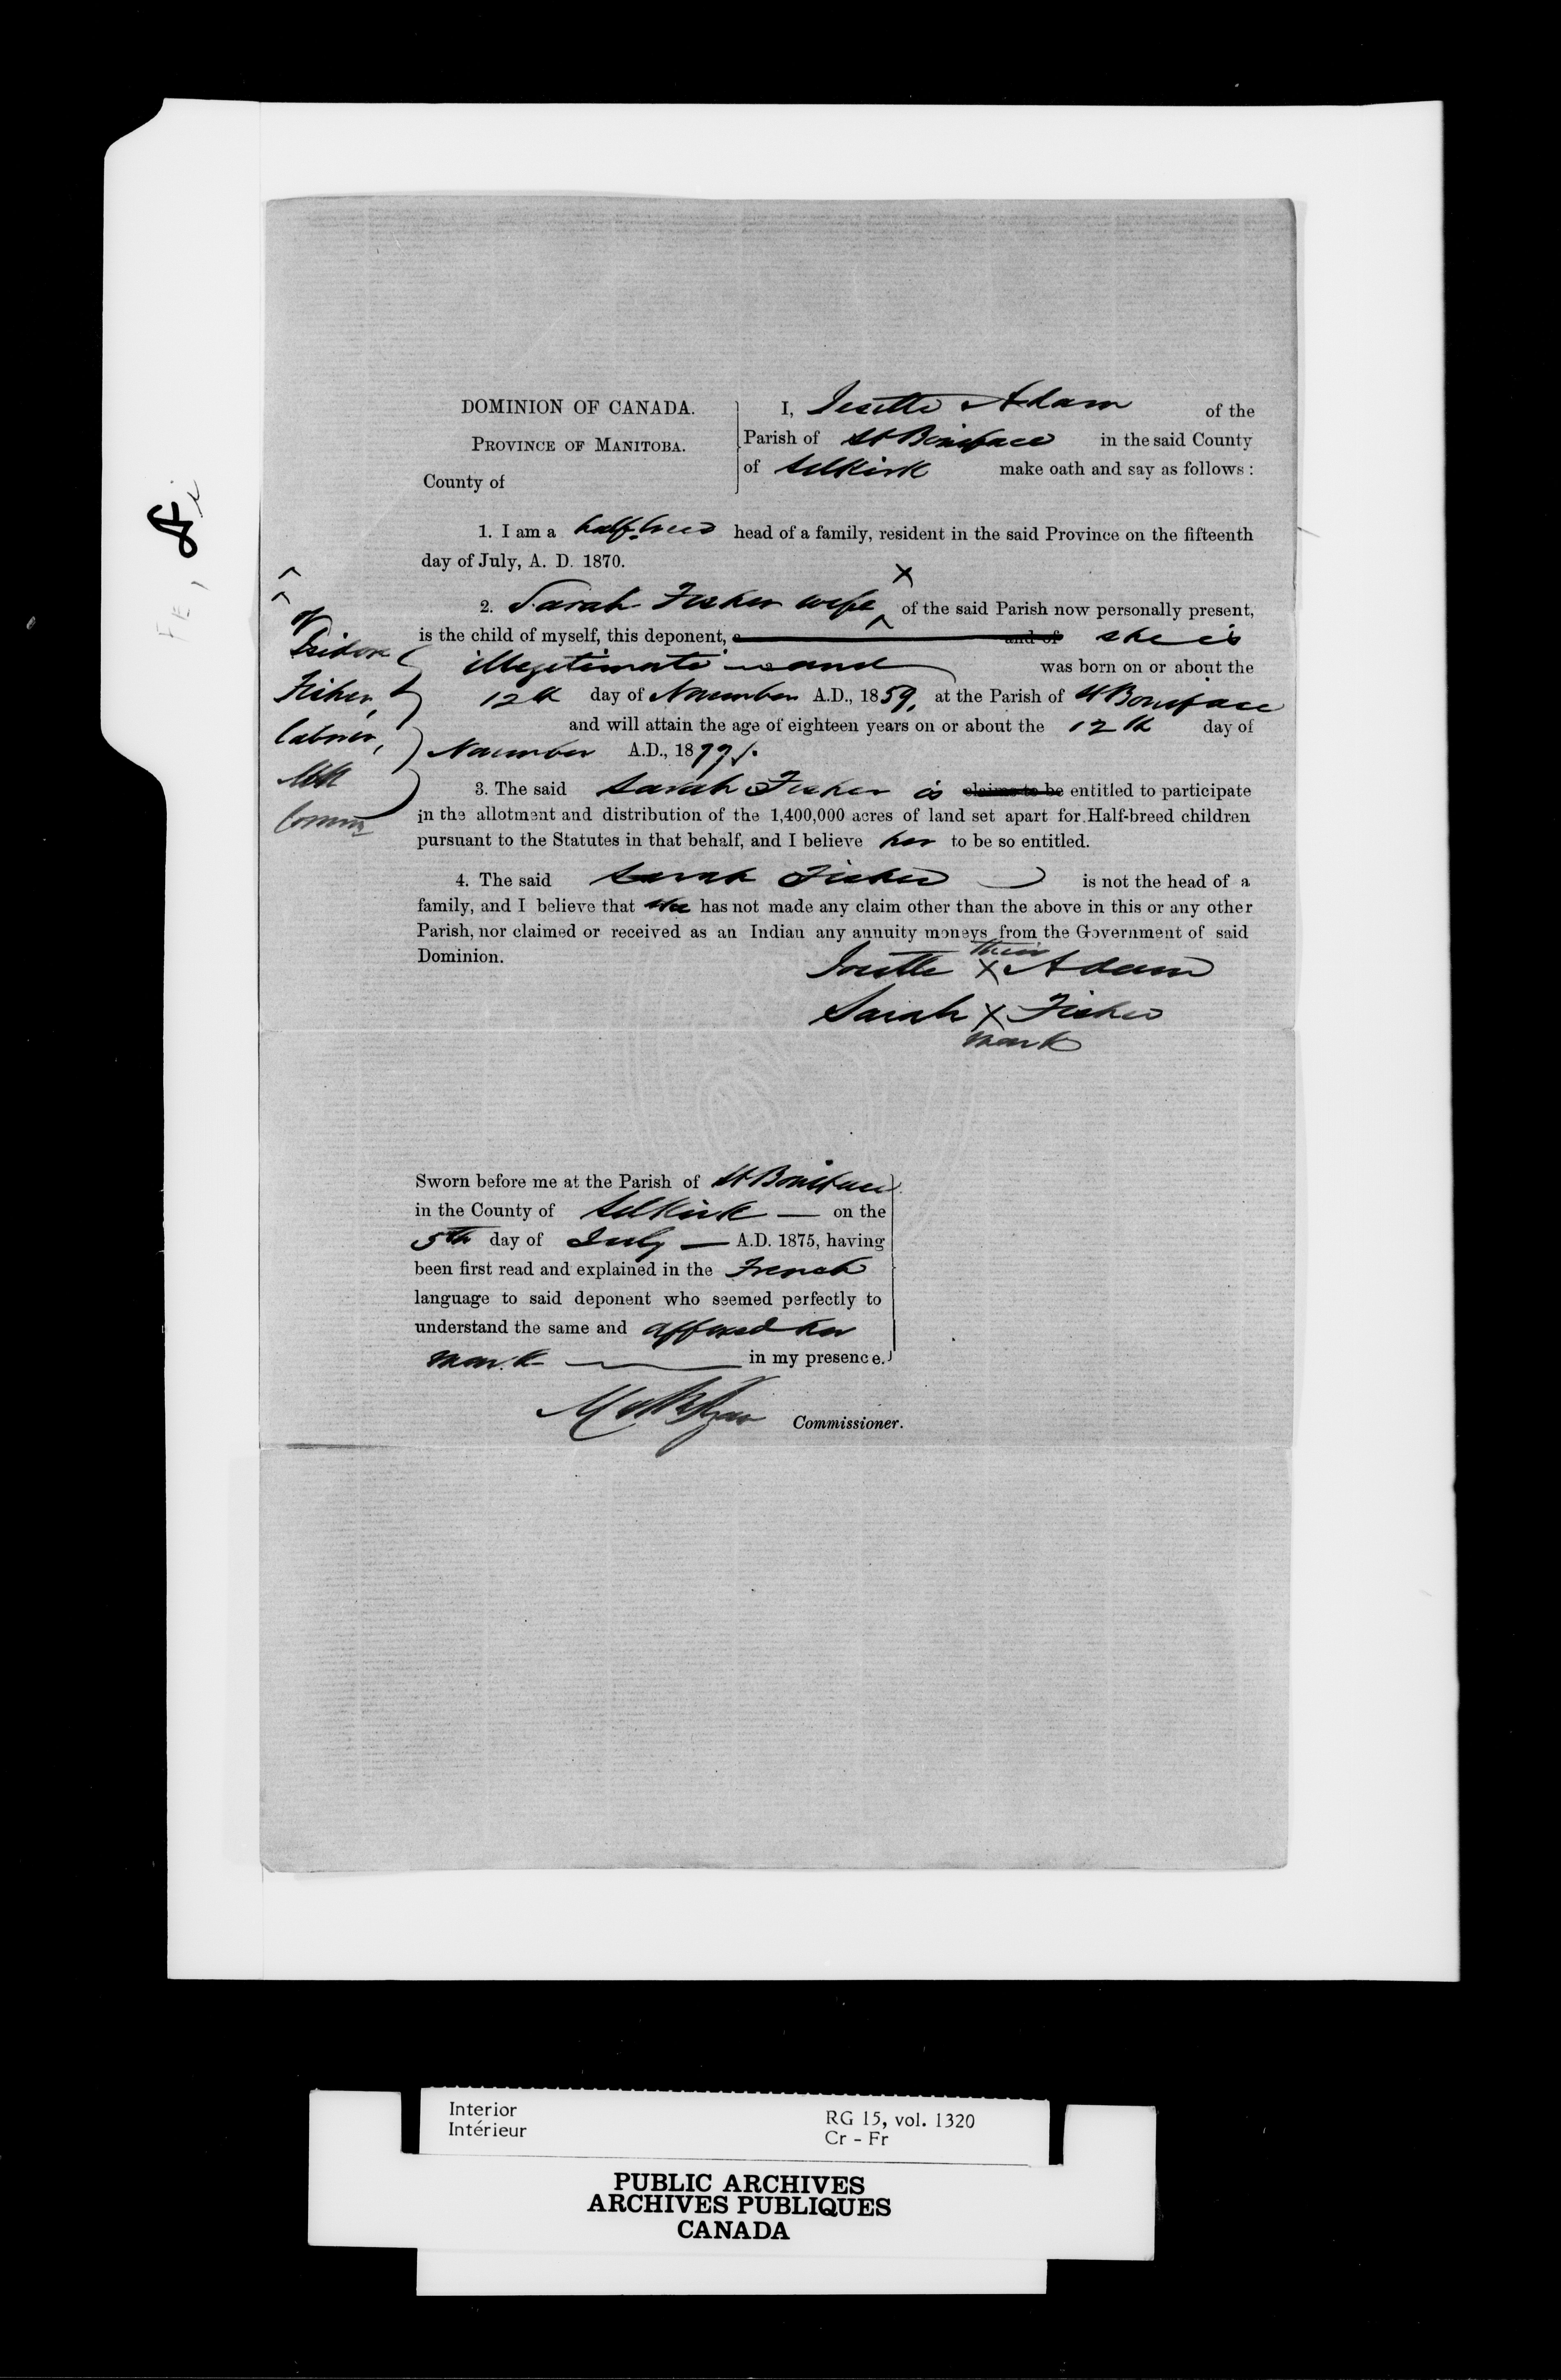 DOMINION OF CANADA.
PROVINCE OF MANITOBA.
County of
I, Josette Adam of the
Parish of St Boniface in the said County
of Selkirk make oath and say as follows :
1. I am a half-breed head of a family, resident in the said Province on the fifteenth
day of July, A. D. 1870.
2. Sarah Fisher wife ^ x of the said Parish now personally present,
is the child of myself, this deponent, and of she is
illegetimate and was born on or about the
12th day of November A.D., 1859, at the Parish of St Boniface
and will attain the age of eighteen years on or about the 12th day of
November A.D., 1877.
of
Isidore
Fisher,
labourer,
3. The said Sarah Fisher is claims to be entitled to participate
in the allotment and distribution of the 1,400,000 acres of land set apart for Half-breed children
pursuant to the Statutes in that behalf, and I believe her to be so entitled.
4. The said Sarah Fisher is not the head of a
family, and I believe that she has not made any claim other than the above in this or any other
Parish, nor claimed or received as an Indian any annuity moneys from the Government of said
Dominion.
their
Josette x Adam
Sarah x Fisher
mark
Sworn before me at the Parish of St Boniface
in the County of Selkirk — on the
5th day of July — A.D. 1875, having
been first read and explained in the French
language to said deponent who seemed perfectly to
understand the same and affixed her
mark in my presence.
Commissioner.
Interior
Intérieur
RG 15, vol. 1320
Cr - Fr
PUBLIC ARCHIVES
ARCHIVES PUBLIQUES
CANADA